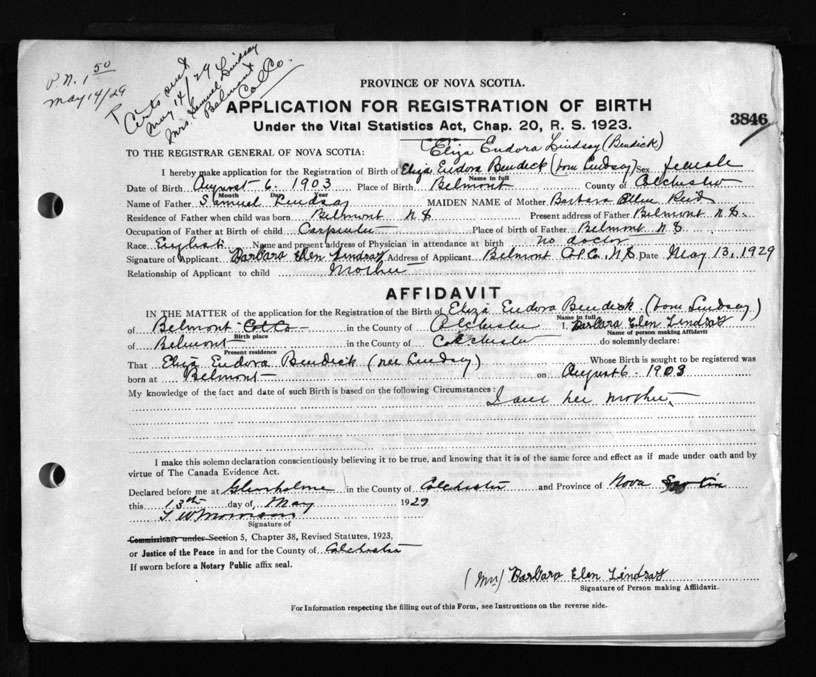 P.N. 1 50
May 14/29
Certs out
May 14/29
Mrs. Samuel Lindsay
Belmont
Col Co.
PROVINCE OF NOVA SCOTIA.
APPLICATION FOR REGISTRATION OF BIRTH
3846
Under the Vital Statistics Act, Chap. 20, R. S. 1923.
Eliza Eudora Lindsay (Bendick)
TO THE REGISTRAR GENERAL OF NOVA SCOTIA:
I hereby make application for the Registration of Birth of Eliza Eudora Bendick (born Lindsay) Sex female
Name in full
Date of Birth August 6. 1903 Place of Birth Belmont County of Colchester
Month Day Year
Name of Father Samuel Lindsay MAIDEN NAME of Mother Barbara Ellen Reid
Residence of Father when child was born Belmont N.S. Present address of Father Belmont N.S.
Occupation of Father at Birth of child Carpenter Place of birth of Father Belmont N.S.
Race English Name and present address of Physician in attendance at birth no doctor
Signature of Applicant Barbara Elen Lindsay Address of Applicant Belmont Col. Co. N.S. Date May 13, 1929
Relationship of Applicant to child Mother
AFFIDAVIT
IN THE MATTER of the application for the Registration of the Birth of Eliza Eudora Bendick (born Lindsay)
Name in full
of Belmont Col Co in the County of Colchester I, Barbara Elen Lindsay
Birth place Name of person making Affidavit
of Belmont in the County of Colchester do solemnly declare:
Present residence
That Eliza Eudora Bendick (nee Lindsay) Whose Birth is sought to be registered was
born at Belmont on August 6. 1903
My knowledge of the fact and date of such Birth is based on the following Circumstances: I am her mother
I make this solemn declaration conscientiously believing it to be true, and knowing that it is of the same force and effect as if made under oath and by
virtue of The Canada Evidence Act.
Declared before me at Glenholme in the County of Colchester and Province of Nova Scotia
this 13th day of May 1929
T W Morrison
Signature of
Commissioner under Section 5, Chapter 38, Revised Statutes, 1923,
or Justice of the Peace in and for the County of Colchester
If sworn before a Notary Public affix seal.
(Mrs) Barbara Elen Lindsay
Signature of Person making Affidavit.
For Information respecting the filling out of this Form, see Instructions on the reverse side.